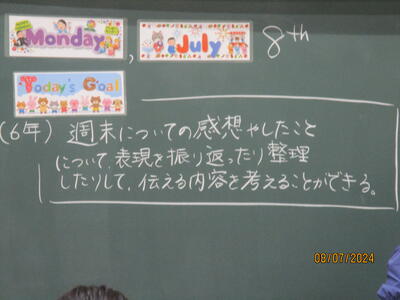 Monday, July 8th
Today's Goal
(6年) 週末についての感想やしたこと
について、表現を振り返ったり整理
したりして、伝える内容を考えることができる。
08/07/2024